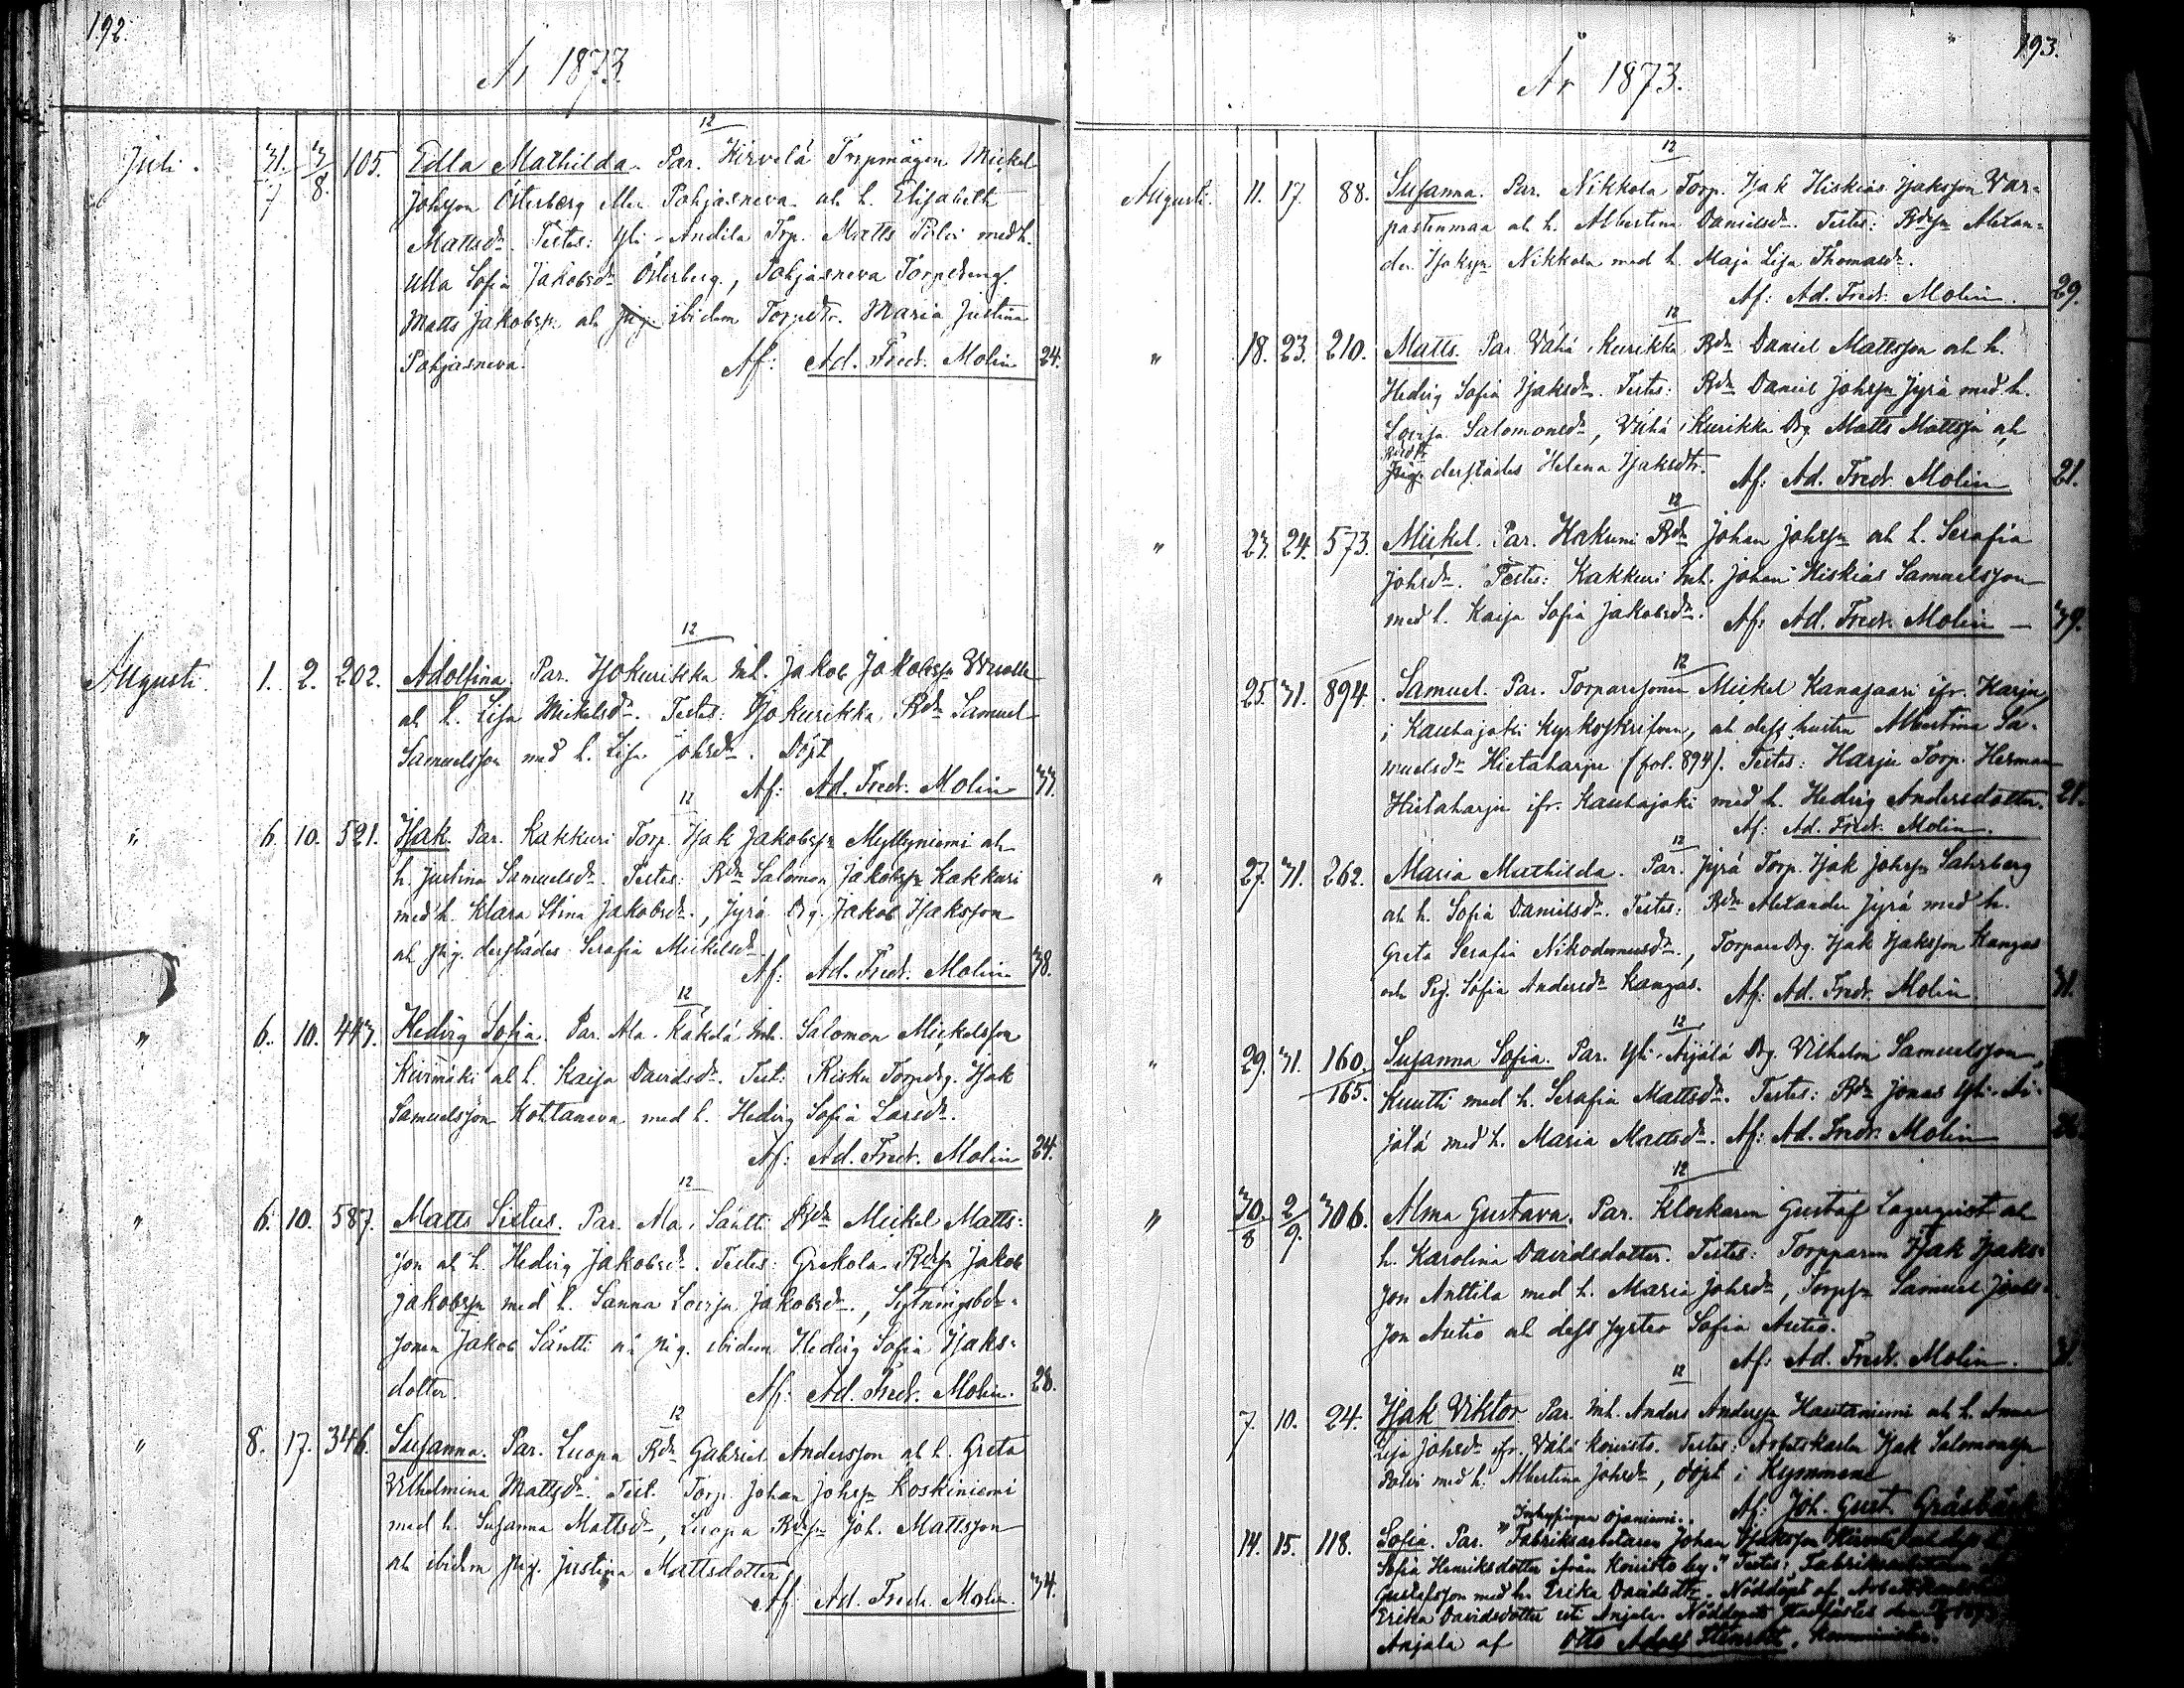 192.
År 1873.
Juli. 31/7 3/8. 105. Edla Mathilda. Par. Hirvelä Torpmågen Mickel
Johsson Österberg eller Pohjasneva och h. Elisabeth
Mattsdr. Testes: Yli-Andila Trp. Matts Polvi med h.
Ulla Sofia Jakobsdr Österberg, Pohjasneva Torpedreng.
Matts Jakobssn och ibidem Torpedtr. Maria Justina
Pohjasneva. Af: Ad. Fredr. Molin 24.
12
Augusti. 1. 2. 202. Adolfina. Par. Ijokurikka Inh. Jakob Jakobssn
och h. Lisa Mickelsdr. Testes: Ijokurikka Bdn Samuel
Samuelsson med h. Lisa Johsdr. Döpt
Af: Ad. Fredr. Molin 33.
12
" 6. 10. 521. Isak. Par. Kakkuri Torp. Isak Jakobssn Myllyniemi och
h. Justina Samuelsdr. Testes: Bdn Salomon Jakobssn Kakkuri
med h. Klara Stina Jakobsdr., Jyrä Drg. Jakob Isaksson
och pig. derstädes Serafia Mickelsdr
Af: Ad. Fredr. Molin 38.
12
" 6. 10. 443. Hedvig Sofia. Par. Ala-Käkelä Inh. Salomon Mickelsson
Kurimäki och h. Kaisa Davidsdr. Test: Risku Torpdrg. Isak
Samuelsson Kohtaneva med h. Hedvig Sofia Larsdr.
Af: Ad. Fredr. Molin 24.
12
" 6. 10. 587. Matts Sixtus. Par. Ala-Säntti Bdn Mickel Matts-
son och h. Hedvig Jakobsdr. Testes: Grekola Bdssn Jakob
Jakobssn med h. Sanna Lovisa Jakobsdr., Sytningsbd-
sonen Jakob Säntti o. pig. ibidem Hedvig Sofia Isaks-
dotter. Af: Ad. Fredr. Molin. 28.
12
" 8. 17. 346. Susanna. Par. Luopa Bdn Gabriel Andersson och h. Greta
Vilhelmina Mattsdr. Test. Torp. Johan Johssn Koskiniemi
med h. Susanna Mattsdr, Luopa Bdssn Joh. Mattsson
och ibidem pig. Justina Mattsdotter
Af: Ad. Fredr. Molin. 34.
193.
År 1873.
12
Augusti. 11. 17. 88. Susanna. Par. Nikkola Torp. Isak Hiskias Isaksson Var-
pastenmaa och h. Albertina Danielsdr. Testes: Bdssn Alexan-
der Isakssn Nikkola med h. Maja Lisa Thomasdr.
Af: Ad. Fredr. Molin. 29.
12
" 18. 23. 210. Matts. Par. Vähä Kurikka Bdn Daniel Mattsson och h.
Hedvig Sofia Isaksdr. Testes: Bdn Daniel Johssn Jyrä med h.
Lovisa Salomonsdr, Vähä Kurikka Drg. Matts Mattssn och
derstädes Helena Isaksdtr. Af: Ad. Fredr. Molin 21.
12
" 23. 24. 573. Mickel. Par. Hakuni Bdn Johan Johssn och h. Serafia
Johsdr. Testes: Kakkuri Inh. Johan Hiskias Samuelsson
med h. Kaisa Sofia Jakobsdr. Af: Ad. Fredr. Molin 39.
12
25. 31. 894. Samuel. Par. Torparesonen Mickel Kanasaari ifr. Harju
i Kauhajoki kyrkoskrifven, och dess hustru Albertina Sa-
muelsdr Hietaharju (fol. 894). Testes: Harju Torp. Herman
Hietaharju ifr. Kauhajoki med h. Hedvig Andersdotter. 21.
Af: Ad. Fredr. Molin.
12
" 27. 31. 262. Maria Mathilda. Par. Jyrä Torp. Isak Johssn Sahrberg
och h. Sofia Danielsdr. Testes: Bdn Alexander Jyrä med h.
Greta Serafia Nikodemusdr., Torpare Drg. Isak Isaksson Kangas
och Pig. Sofia Andersdr Kangas. Af: Ad. Fredr. Molin 31.
12
" 29. 31. 160. 165. Susanna Sofia. Par. Yli-Äijälä Drg. Vilhelm Samuelsson
Kuutti med h. Serafia Mattsdr. Testes: Bdn Jonas Yli-Äi-
jälä med h. Maria Mattsdr. Af: Ad. Fredr. Molin
12
" 30/8 2/9. 306. Alma Gustava. Par. Klockaren Gustaf Lagerqvist och
h. Karolina Davidsdotter. Testes: Torpparen Isak Isaks-
son Anttila med h. Maria Johsdr, Torpssn Samuel
son Autio och dess syster Sofia Autio.
Af: Ad. Fredr. Molin.
12
7. 10. 24. Isak Viktor Par. Inh. Anders Anderssn Hautaniemi och h. Anna
Lisa Johsdr ifr. Vähä Koivisto. Testes: Arbetskarlen Isak Salomonssn
Polvi med h. Albertina Johsdr, döpt i Kymmene
Af: Joh. Gust. Gråsbäck
14. 15. 118. Sofia. Par. "Fabriksarbetaren Johan Isaksson
Sofia Henriksdotter ifrån Koivisto by." Testes: Fabriksarbetaren
Gustafsson med h. Erika Davidsdtr. Nöddöpt af
Erika Davidsdotter uti Anjala. Nöddopet stadfästes den
Anjala af Otto Adolf